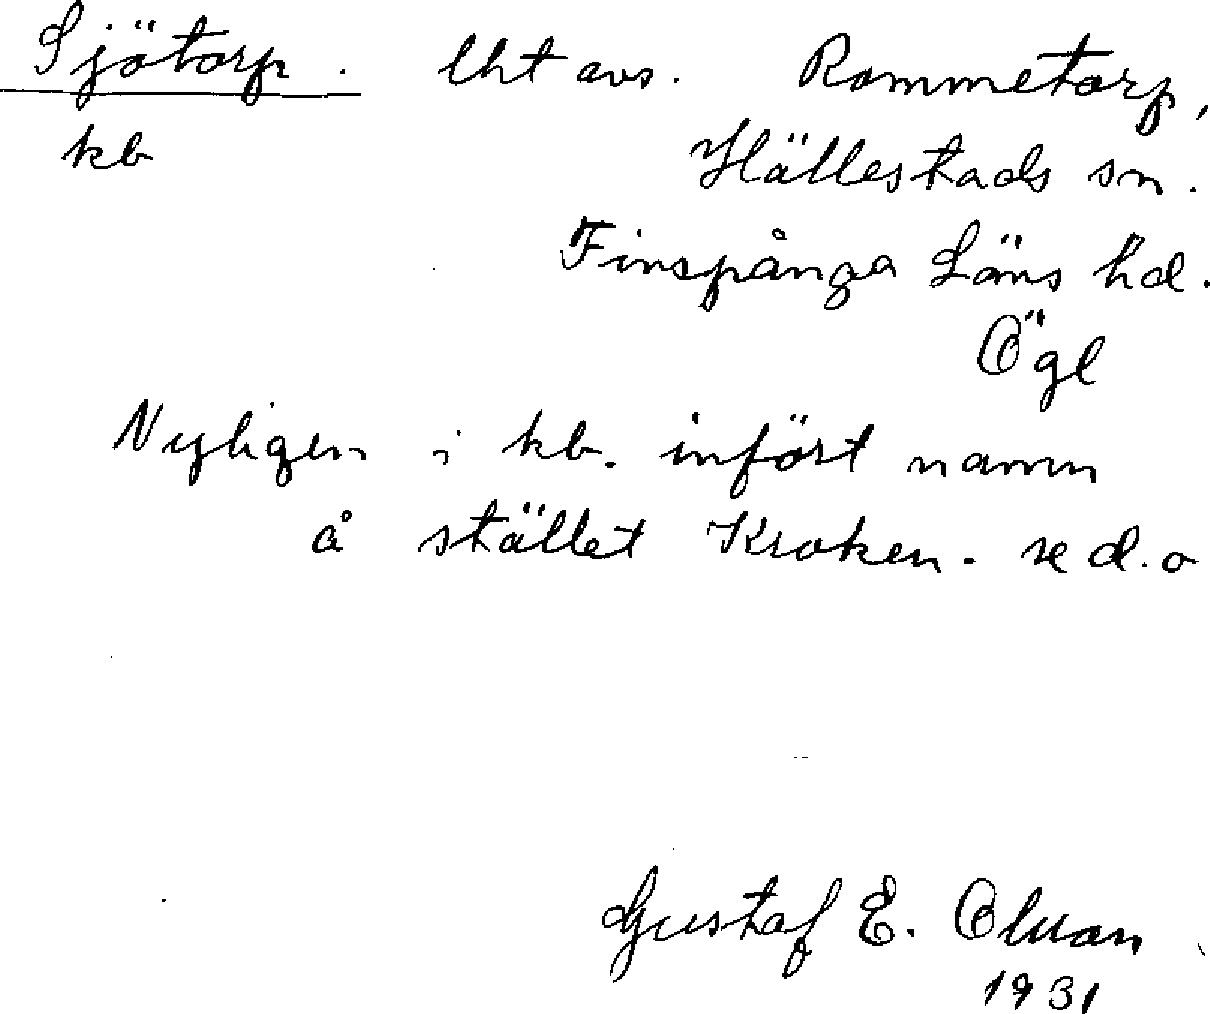 Sjötorp. lht avs. Rommetorp,
kb Hällestads sn.
Finspånga Läns hd.
Ögl
Nyligen i kb. infört namn
å stället Kroken. se d.o
Gustaf E. Olsson
1931